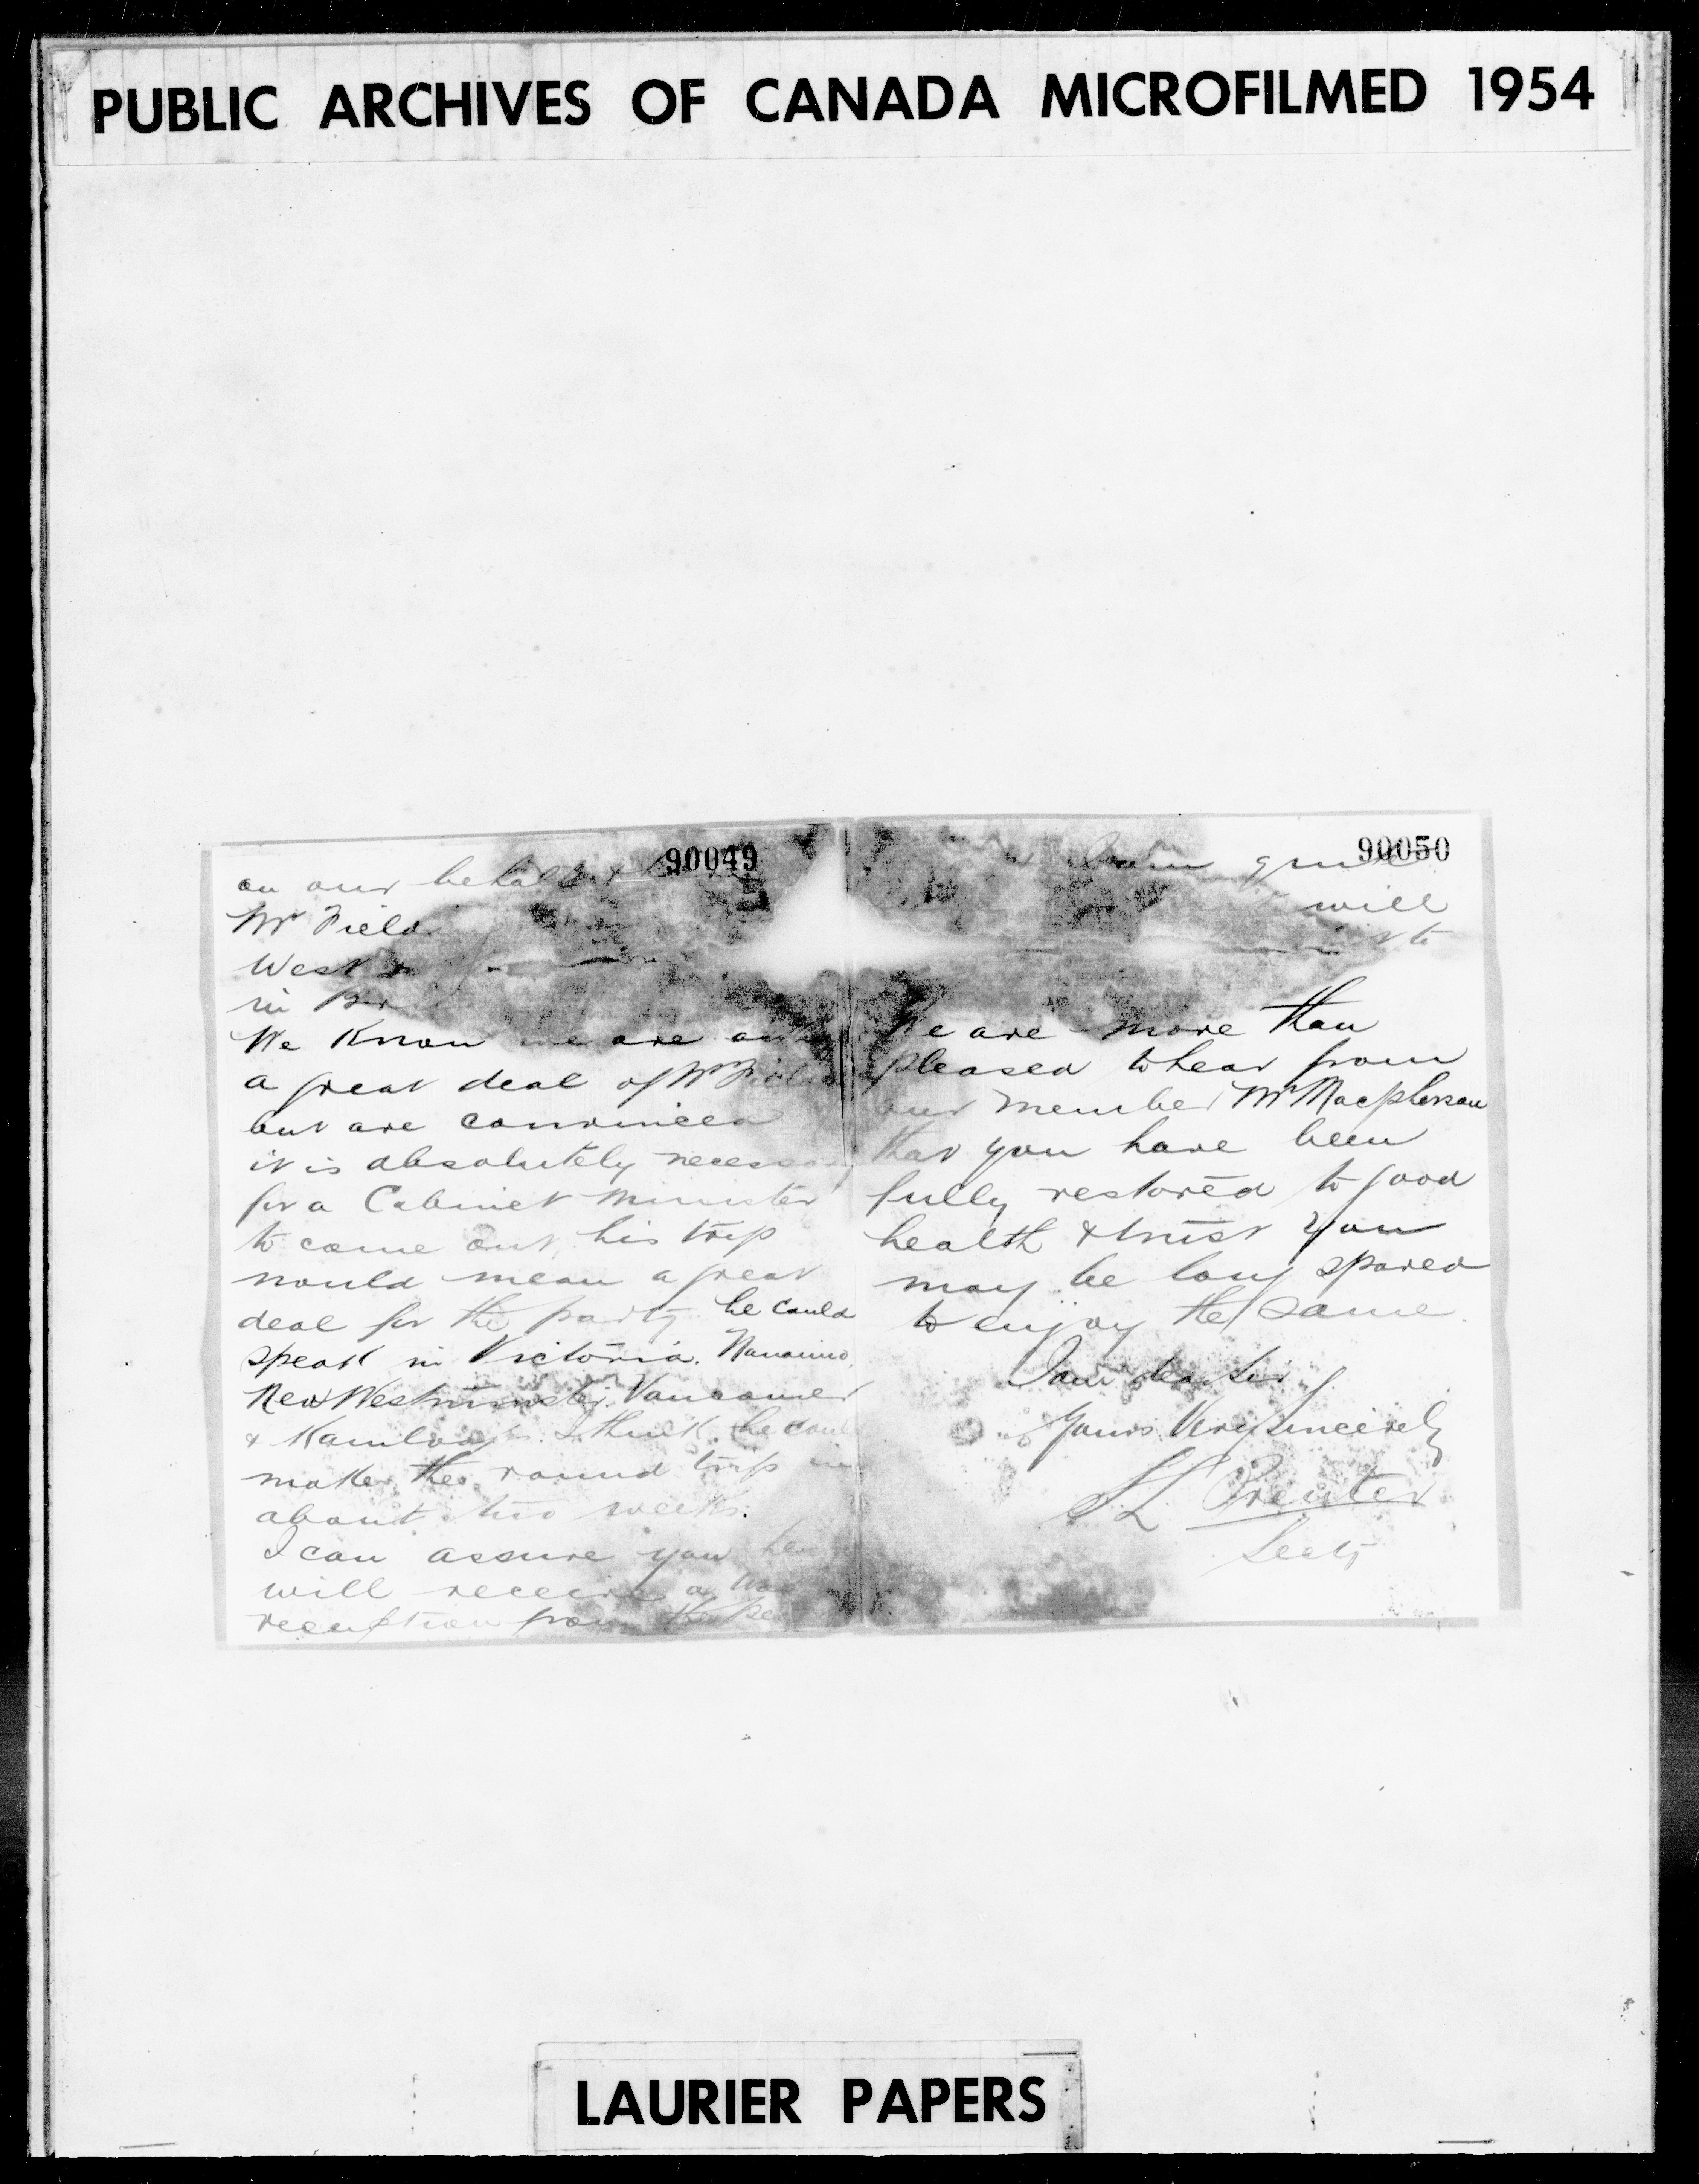 PUBLIC ARCHIVES OF CANADA MICROFILMED 1954
90049
on our behalf &
Mr Field
West
in Br
We know we are
a great deal of Mr
but are convinced
it is absolutely necessary
for a Cabinet Minister
to come out, his trip
would mean a great
deal for the party he could
speak in Victoria. Nanaimo,
New Westminster, Vancouver
& Kamloops. I think he coul
make the round trip in
about two weeks.
I can assure you he
will receive a
reception from the
90050
will
to
We are more than
pleased to hear from
our member Mr Macpherson
that you have been
fully restored to good
health & trust you
may be long spared
to enjoy the same.
I am dear Sir
Yours Very Sincerely
Prenter
Secty
LAURIER PAPERS